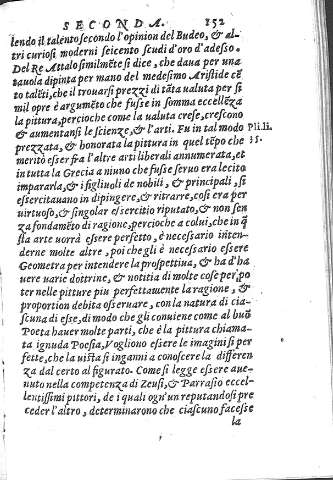 SECONDA. 152
lendo il talento secondo l'opinion del Budeo, & al-
tri curiosi moderni seicento scudi d'oro d'adesso.
Del Re Attalo similmẽte si dice, che daua per una
tauola dipinta per mano del medesimo Aristide cẽ
to talẽti, che il trouarsi prezzi di tãta ualuta per si
mil opre è argumẽto che fusse in somma eccellẽza
la pittura, percioche come la ualuta crese, crescono
& aumentansi le scienze, & l'arti. Fu in tal modo Pli.li.
prezzata, & honorata la pittura in quel tẽpo che 35.
meritò esser fra l'altre arti liberali annumerata, et
in tutta la Grecia a niuno che fusse seruo era lecito
impararla, & i figliuoli de nobili, & principali, si
essercitauano in dipingere, & ritrarre, cosi era per
uirtuoso, & singolar essercitio riputato, & non sen
za fondamẽto di ragione, percioche a colui, che in q̃
sta arte uorrà essere perfetto, è necessario inten-
derne molte altre, poi che gli è necessario essere
Geometra per intendere la prospettiua, & ha d'ha
uere uarie dottrine, & notitia di molte cose per po
ter nelle pitture piu perfettamente la ragione, &
proportion debita osseruare, con la natura di cia-
scuna di esse, di modo che gli conuiene come al buõ
Poeta hauer molte parti, che è la pittura chiama-
ta ignuda Poesia, Vogliono essere le imagini si per
fette, che la uista si inganni a conoscere la differen
za dal certo al figurato. Come si legge essere aue-
nuto nella competenza di Zeusi, & Parrasio eccel-
lentissimi pittori, de i quali ogn'un reputandosi pre
ceder l'altro, determinarono che ciascuno facesse
la